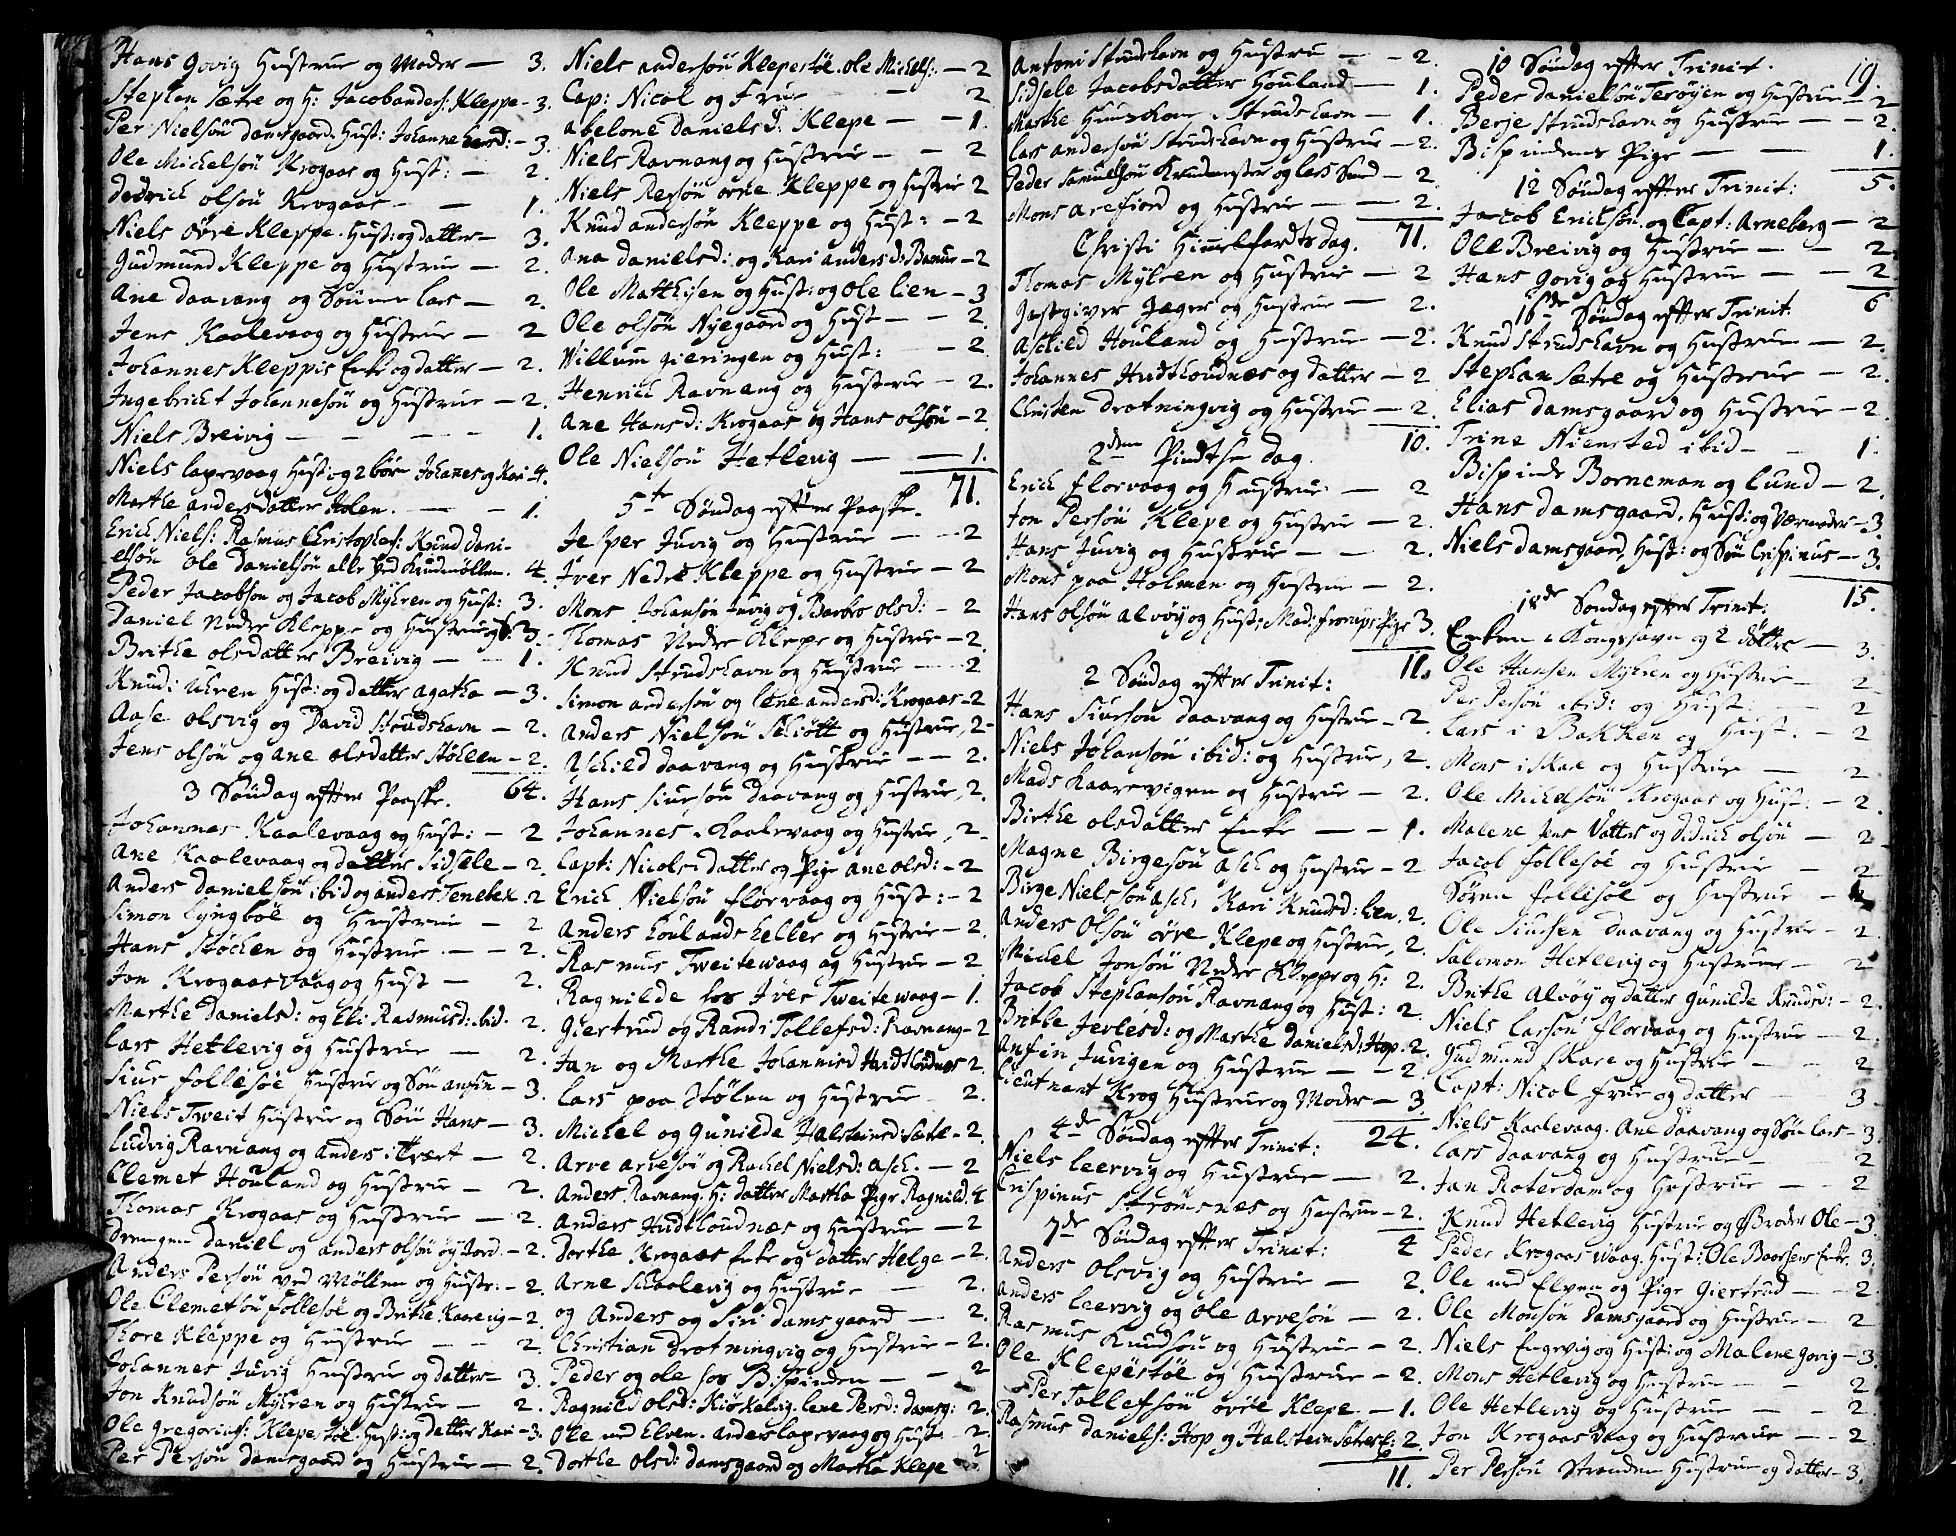 Hans Govig Hustrue og Moder — 3.
Stephan Sætre og H: Jacob anders: Kleppe — 3.
Per Nielsøn damsgaard. Hust: Johanne Larsd: — 3.
Ole Michelsøn Krogaas og Hust: — 2.
dedrich olsøn Krogaas — 1.
Niels øvre Kleppe. Hust: og datter — 3.
Gudmund Kleppe og Hustrue — 2.
Ane Daavang og Sønnen Lars — 2.
Jens Kaalevaag og Hustrue — 2
Johannes Kleppis Enke og datter — 2.
Ingebricht Johannesøn og Hustrue — 2.
Niels Breivig — 1.
Niels Lapsvaag Hust: og 2 bør Johanes og Kari — 4.
Marthe andersdatter Holen. — 1.
Erich Niels: Rasmus Christophes: Knud Dani-
elsøn ole Danielsøn alle ved Krudmøllen. 4.
Peder Jacobsøn og Jacob Myhren og Hust: 3.
Daniel Nedre Kleppe og Hustrue og 3.
Brithe olsdatter Breivig — 1.
Knud i Uhren Hust: og datter agatha — 3.
Aase olsvig og David Strudshavn — 2.
Jens olsøn og ane olsdatter Støhlen — 2.
3 Søndag effter Paaske. 64.
Johannes Kaalevaag og Hust: — 2
Ane Kaalevaag og datter Sidsele — 2.
Anders Danielsøn ibid og anders Tenebek 2
Simon Lyngbøe og Hustrue — 2
Hans Støhlen og Hustrue — 2.
Jon Krogaasvaag og Hust — 2.
Marthe Daniels d: og Eli Rasmusd: ibid. 2.
Lars Hetlevig og Hustrue — 2.
Siur Follesøe Hustrue og Søn anfin — 3.
Niels Tweit Hustrue og Søn Hans — 3.
Ludvig Ravnang og anders i Tvært — 2.
Clemet Houland og Hustrue — 2.
Thomas Krogaas og Hustrue — 2.
Drengen Daniel og anders olsøn øyjord. — 2.
Anders Persøn ved Møllen og Hustr: — 2.
Ole Clemetsøn Follesøe og Brithe Kaarevig — 2.
Thore Kleppe og Hustrue — 2.
Johannes Juvig Hustrue og datter — 3.
Jon Knudsøn Myhren og Hustrue — 2.
Ole Gregorius: Klepestøe. Hust: og datter Kari — 3.
Per Persøn Damsgaard og Hustrue — 2.
Niels andersøn Klepestøe. ole Michels: — 2
Cap: Nicol og Frue — 2
abelone Daniels d: Klepe — 1.
Niels Ravnang og Hustrue — 2
Niels Persøn øvre Kleppe og Hustrue 2
Knud andersøn Kleppe og Hust: — 2
Ana danielsd: og Kari anders d: — 2
Ole Matthisen og Hust: og ole Lien — 3
Ole olsøn Nyegaard og Hust — 2.
Willum Gieringen og Hust: — 2.
Henrich Ravnang og Hustrue — 2.
Ane Hansd: Krogaas og Hans olsøn — 2.
Ole Nielsøn Hetlevig — 1.
5te Søndag effter Paaske. 71.
Jesper Juvig og Hustrue — 2
Iver Nedre Kleppe og Hustrue — 2
Mons Johansøn Juvig og Barbro olsd: — 2
Thomas Nedre Klepe og Hustrue — 2.
Knud Strudshavn og Hustrue — 2
Simon andersøn og Lene andersd: Krogaas — 2
Anders Nielsøn Skiøtt og Hustrue, 2 -
Aschild Daavang og Hustrue — 2.
Hans Siursøn Daavang og Hustrue, 2.
Johannes Kaalevaag og Hustrue, 2 -
Capt: Nicols datter og Pige Ane olsd: — 2
Erich Nielsøn Florvaag og Hust: — 2
Anders Houlandsheller og Hustrue — 2.
Rasmus Tweitevaag og Hustrue — 2
Ragnilde hos Iver Tweitewaag — 1.
Giertrud og Randi Tollefsd: Ravnang — 2
Jan og Marthe Johannisd Handthoudnæs 2.
Lars paa Stølen og Hustrue — 2.
Michel og Gunilde Halsteinsd: Sætre — 2.
Arve arvesøn og Rachel Nielsd: Asch. — 2
Anders Ravnang. H: datter Martha Pige Ragnild. 4
Anders Hudthoudnæs og Hustrue — 2
Dorthe Krogaas Enke og datter Helge — 2.
Arne Skaalevig og Hustrue — 2.
og Anders og Siri Damsgaard — 2.
Christian Drotningvig og Hustrue — 2.
Peder og ole hos Bispinden — 2
Ragnild olsd: Kiøkelvig. Lene Persd: Damsg: 2.
Ole ved Elven. anders Lapsvaag og Hust — 2.
Dorthe olsd: Damsgaard og Martha Klepe 2
Antoni Strudshavn og Hustrue — 2.
Sidsele Jacobsdatter Houland — 1.
Marthe Strudshavn — 1.
Lars andersøn Strudshavn og Hustrue — 2.
Peder Samuelsøn Krudmester og Lars Sund — 2.
Mons Arefiord og Hustrue — 2.
Christi Himmelfardts dag. 71.
Thomas Myhren og Hustrue — 2
Gastgiver Jæger og Hustrue — 2.
Aschild Houland og Hustrue — 2.
Johannes Hudthoudnæs og datter — 2
Christen Drotningvig og Hustrue — 2.
2den Pindtse dag. 10.
Erich Florvaag og Hustrue — 2
Jon Persøn Klepe og Hustrue — 2.
Hans Juvig og Hustrue — 2.
Mons paa Holmen og Hustrue — 2.
Hans Olsøn Alvøy og Hust: Mad: Pige 3.
2 Søndag effter Trinit: 11.
Hans Siursøn Daavang og Hustrue — 2.
Niels Johansøn ibid: og Hustrue, 2.
Mads Kaarevigen og Hustrue — 2.
Birthe olsdatter Enke — 1.
Magne Birgesøn Asch og Hustrue — 2
Birge Nielssøn Asch, Kari Knudsd: Lien. 2.
Anders Olsøn øvre Klepe og Hustrue, 2.
Michel Jonsøn Nedre Kleppe og H: 2.
Jacob Stephansøn Ravnang og Hust: 2.
Brithe Jerlesd: og Marthe Danielsd: Hop. 2.
Anfin Juvigen og Hustrue — 2.
Lieutnant Krog Hustrue og Moder — 3.
4de Søndag effter Trinit: 24.
Niels Leervig og Hustrue — 2.
Crispinus Strømsnes og Hustrue — 2.
7de Søndag effter Trinit: 4
Anders Olsvig og Hustrue — 2.
Anders Leervig og ole Arvesøn — 2.
Rasmus Knudsøn og Hustrue — 2.
Ole Klepestøe og Hustrue — 2.
Per Tollefsøn øvre Klepe — 1.
Rasmus Daniels: Hop og Halstein Sætres E: 2.
11.
10 Søndag effter Trinit. 19.
Peder Danielsøn Terøyen og Hustrue — 2
Berje Strudshavn og Hustrue — 2.
Bispindens Pige — 1.
12 Søndag effter Trinit: 5.
Jacob Erichsøn. og Capt: Arneberg — 2
Ole Breivig og Hustrue — 2.
Hans Govig og Hustrue — 2
16de Søndag effter Trinit: 6
Knud Strudshavn og Hustrue — 2.
Stephan Sætre og Hustrue — 2.
Elias Damsgaard og Hustrue — 2.
Trine Niensted ibid — 1.
Bispinde Borneman og Lund — 2.
Hans Damsgaard, Hust: og Værmoder — 3.
Niels Damsgaard, Hust: og Søn Crispinus — 3.
18de Søndag effter Trinit: 15.
Enken i Kongshavn og 2 døttre — 3.
Ole Hansen Myhren og Hustrue — 2
Per Persøn ibid: og Hust: — 2
Lars i Bakken og Hust. — 2
Mons i Skare og Hustrue — 2
Ole Michelsøn Krogaas og Hust: — 2.
Malene Jens Datter og Didrich olsøn — 2
Jacob Follesøe og Hustrue — 2
Søren Follesøe og Hustrue —
Ole Siursen Daavang og Hustrue — 2.
Salomon Hetlevig og Hustrue — 2
Brithe Alvøy og datter Gunilde Knudsd: — 2.
Niels Larsøn Florvaag og Hustrue — 2.
Gudmund Skare og Hustrue — 2
Capt: Nicol Frue og datter — 3 -
Niels Kaalevaag. Ane Daavang og Søn Lars — 3.
Lars Daavang og Hustrue — 2
Jan Roterdam og Hustrue — 2
Knud Hetlevig Hustrue og Broder Ole — 3.
Peder Krogaasvaag. Hust: Ole Enke. 3.
Ole ved Elven og Pige Giertrud — 2.
Ole Monsøn Damsgaard og Hustrue — 2
Niels Engevig og Hust: og Malene Govig — 3.
Mons Hetlevig og Hustrue — 2
Ole Hetlevig og Hustrue — 2.
Jon Krogaasvaag og Hustrue — 2
Per Persøn Stranden Hustrue og datter — 3.